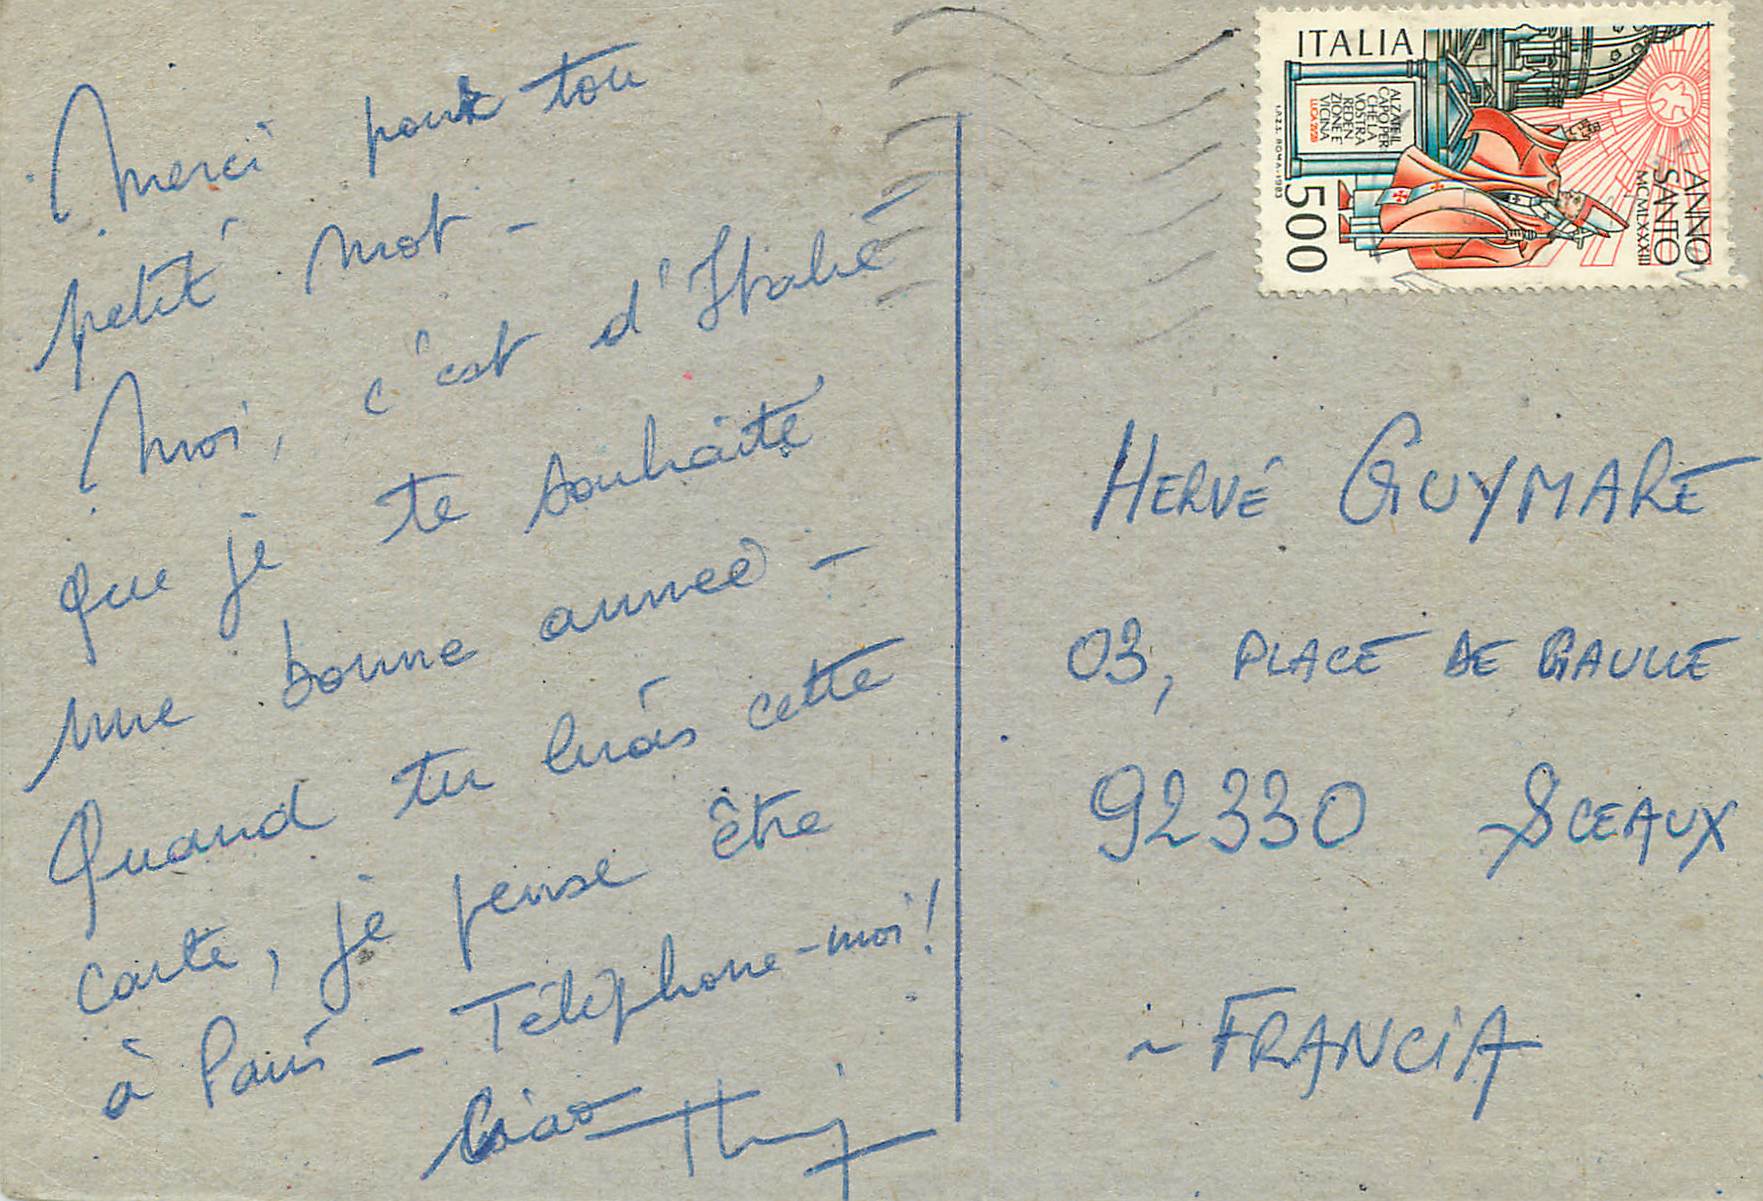 Merci pour ton
petit mot -
Moi, c'est d'Italie
que je te souhaite
une bonne année -
Quand tu liras cette
carte, je pense être
à Paris - Téléphone-moi!
Ciao
ITALIA
ALZATE IL
CAPO PER
CHE LA
VOSTRA
REDEN
ZIONE È
VICINA
LUCA 21/28
I.P.Z.S. ROMA-1983
500
ANNO
SANTO
MCMLXXXIII
HERVÉ GUYMARE
03, PLACE DE GAULLE
92330 SCEAUX
~ FRANCIA